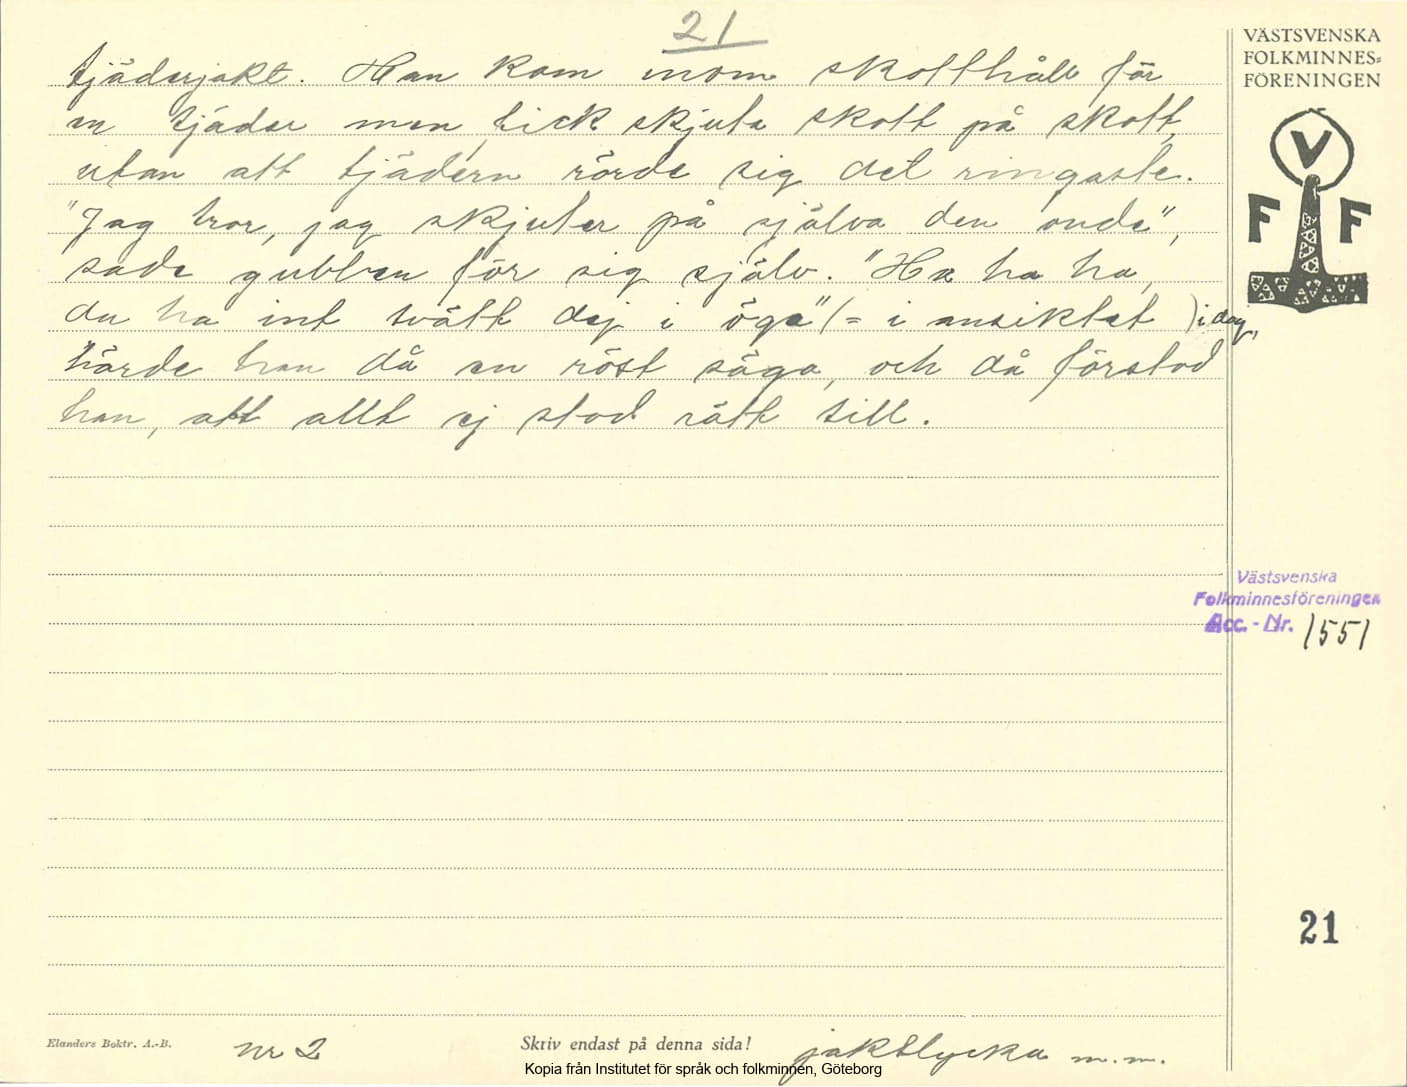 21
tjäderjakt. Han kom inom skotthåll för
en tjäder men fick skjuta skott på skott,
utan att tjädern rörde sig det ringaste.
"Jag tror, jag skjuter på själva den onde",
sade gubben för sig själv. "Ha ha ha,
du ha int tvätt dej i öga" (= i ansiktet) i dag,
hörde han då en röst säga, och då förstod
han, att allt ej stod rätt till.
VÄSTSVENSKA
FOLKMINNES=
FÖRENINGEN
V
F F
Västsvenska
Folkminnesföreningen
Acc.-Nr. 1551
21
Elanders Boktr. A.-B.
nr 2
Skriv endast på denna sida!
jaktlycka m.m.
Kopia från Institutet för språk och folkminnen, Göteborg